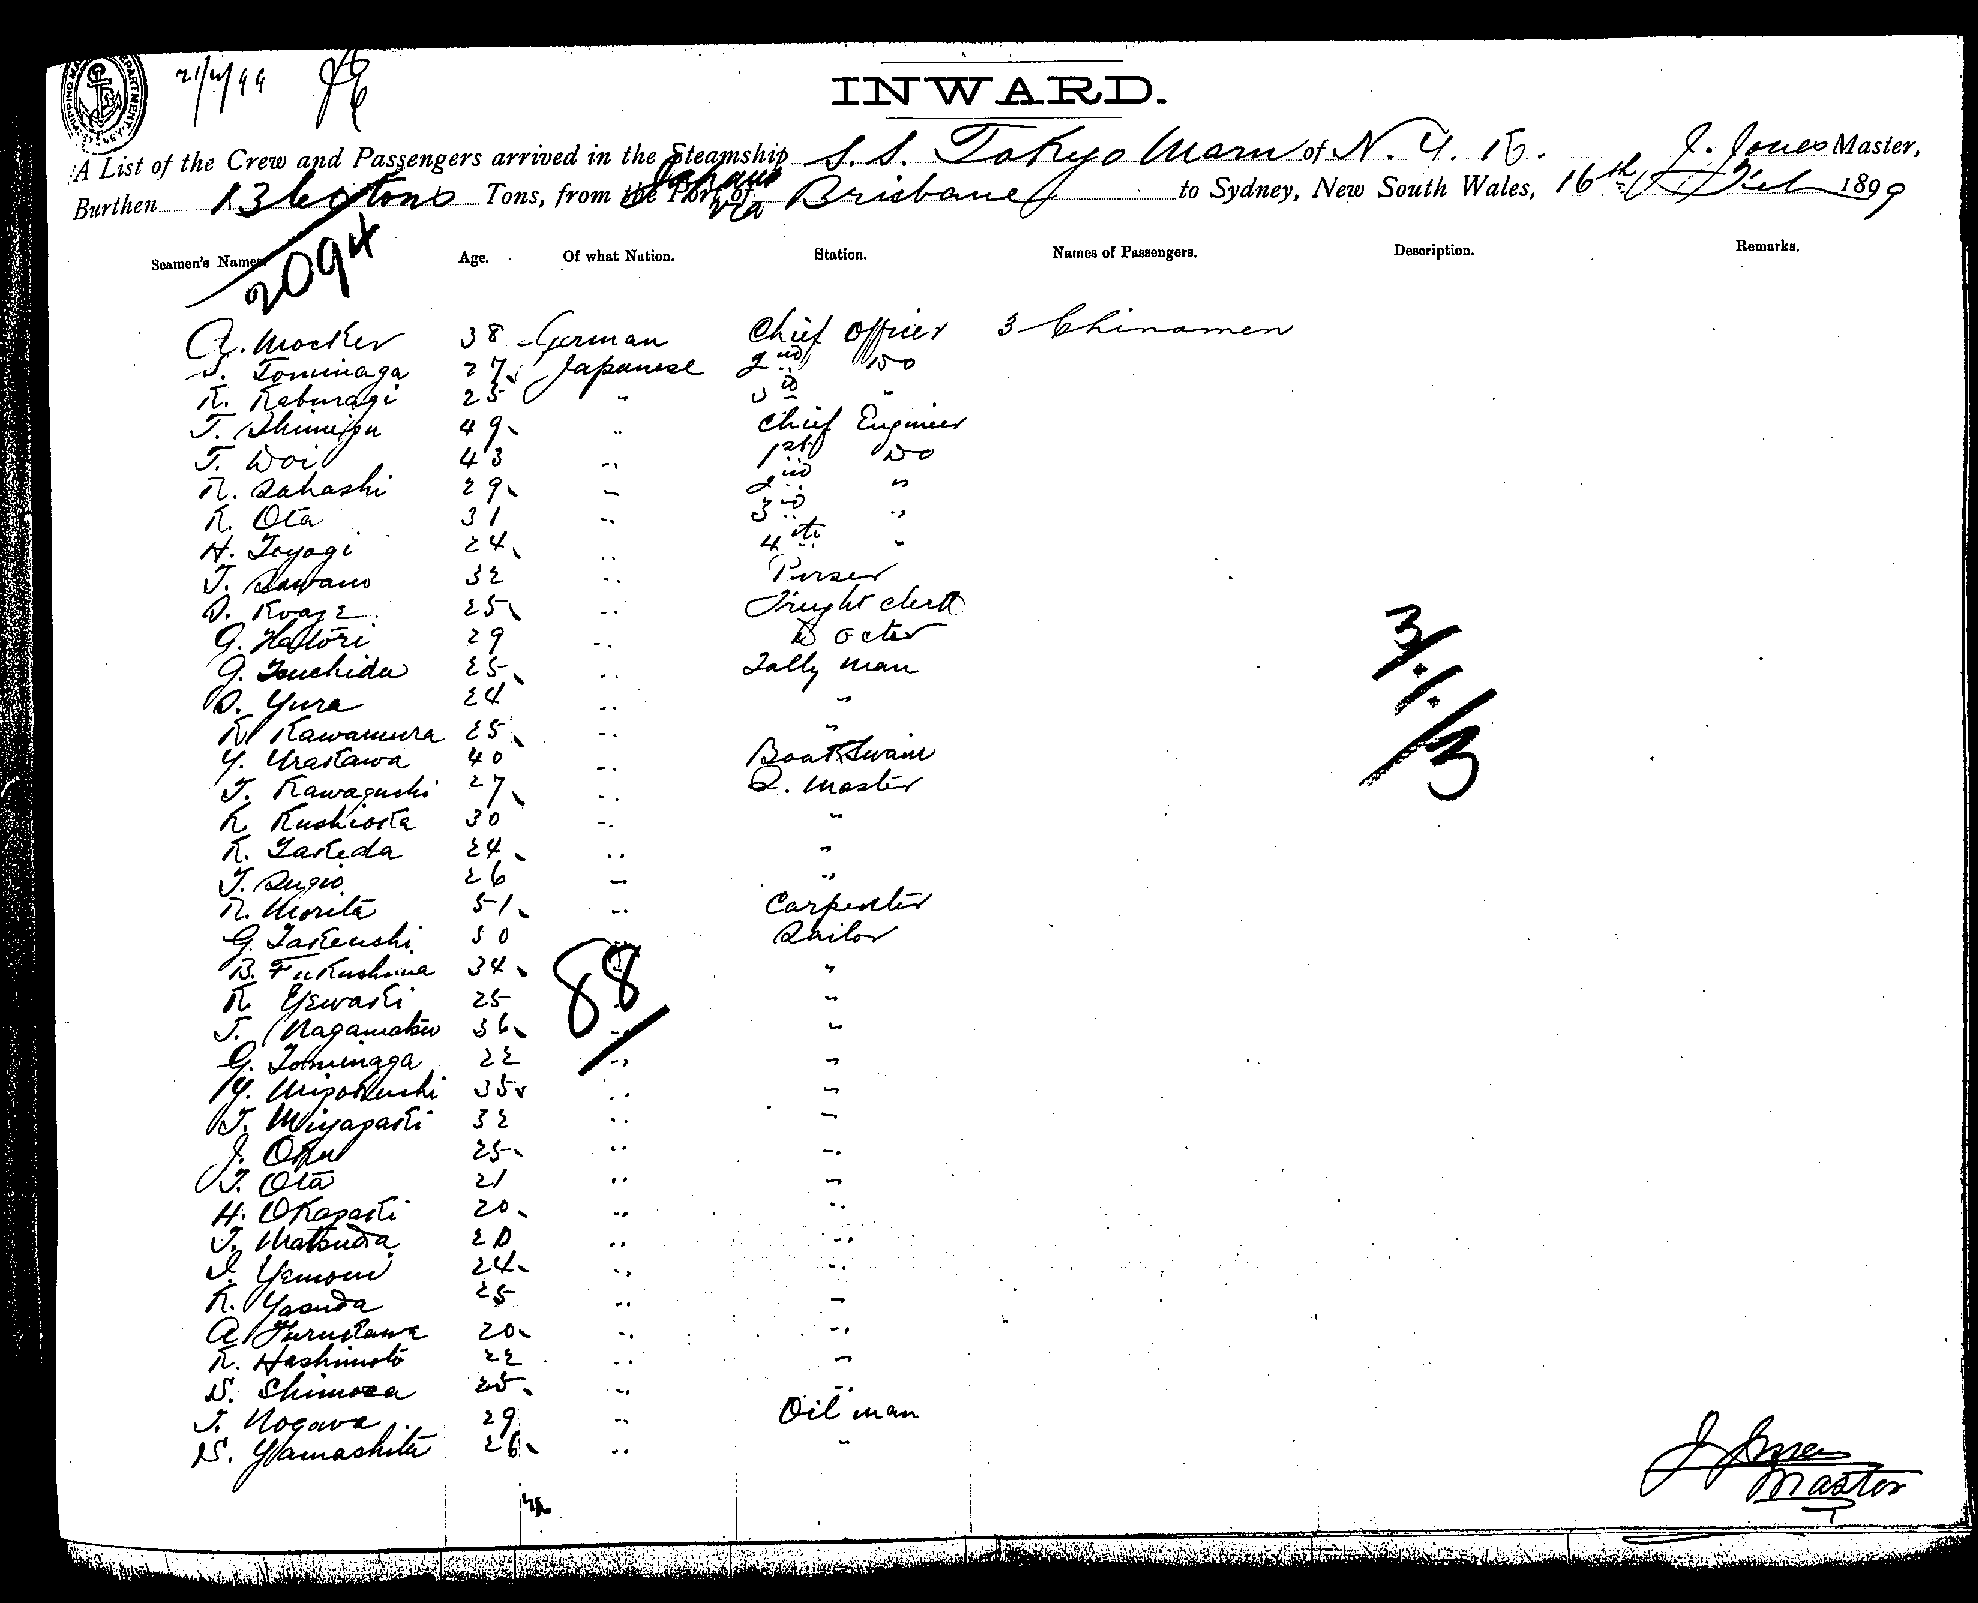 21/2/99
INWARD.
A List of the Crew and Passengers arrived in the Steamship S.S. Tokyo Maru of N. Y. K. J. Jones Master,
Burthen Tons, from the Port of Japan via Brisbane to Sydney, New South Wales, 16th Feb 1899
2094
Seamen's Names. Age. Of what Nation. Station. Names of Passengers. Description. Remarks.
A. Mocker 38 German Chief Officer 3 Chinamen
T. Tominaga 27 Japanese 2nd Do
K. Kaburagi 25 " 3rd "
T. Shimizu 49 " Chief Engineer
T. Doi 43 " 1st Do
K. Sakashi 29 " 2nd "
K. Ota 31 " 3rd "
H. Toyogi 24 " 4th "
T. Sawano 32 " Purser
25 " Freight clerk
G. Hattori 29 " Docter
G. Tsuchida 25 " Tally man
S. Yura 24 " "
K. Kawamura 25 " "
Y. Urakawa 40 " Boatswain
T. Kawaguchi 27 " Q. Master
K. Kushioka 30 " "
K. Takeda 24 " "
T. Sugio 26 " "
K. Morita 51 " Carpenter
G. Takeuchi 30 " Sailor
B. Fukushima 34 " "
K. Yewaki 25 " "
T. Nagamatsu 36 " "
G. Tominaga 22 " "
Y. Mizokuchi 35 " "
T. Miyazaki 32 " "
J. Oku 25 " "
T. Ota 21 " "
H. Okazaki 20 " "
T. Matsuda 20 " "
I. Yemori 24 " "
K. Yasuda 25 " "
A. Furukawa 20 " "
K. Hashimoto 22 " "
S. Shimosa 25 " "
T. Nogawa 29 " Oil man
S. Yamashita 26 " "
3/1/3
88
Master